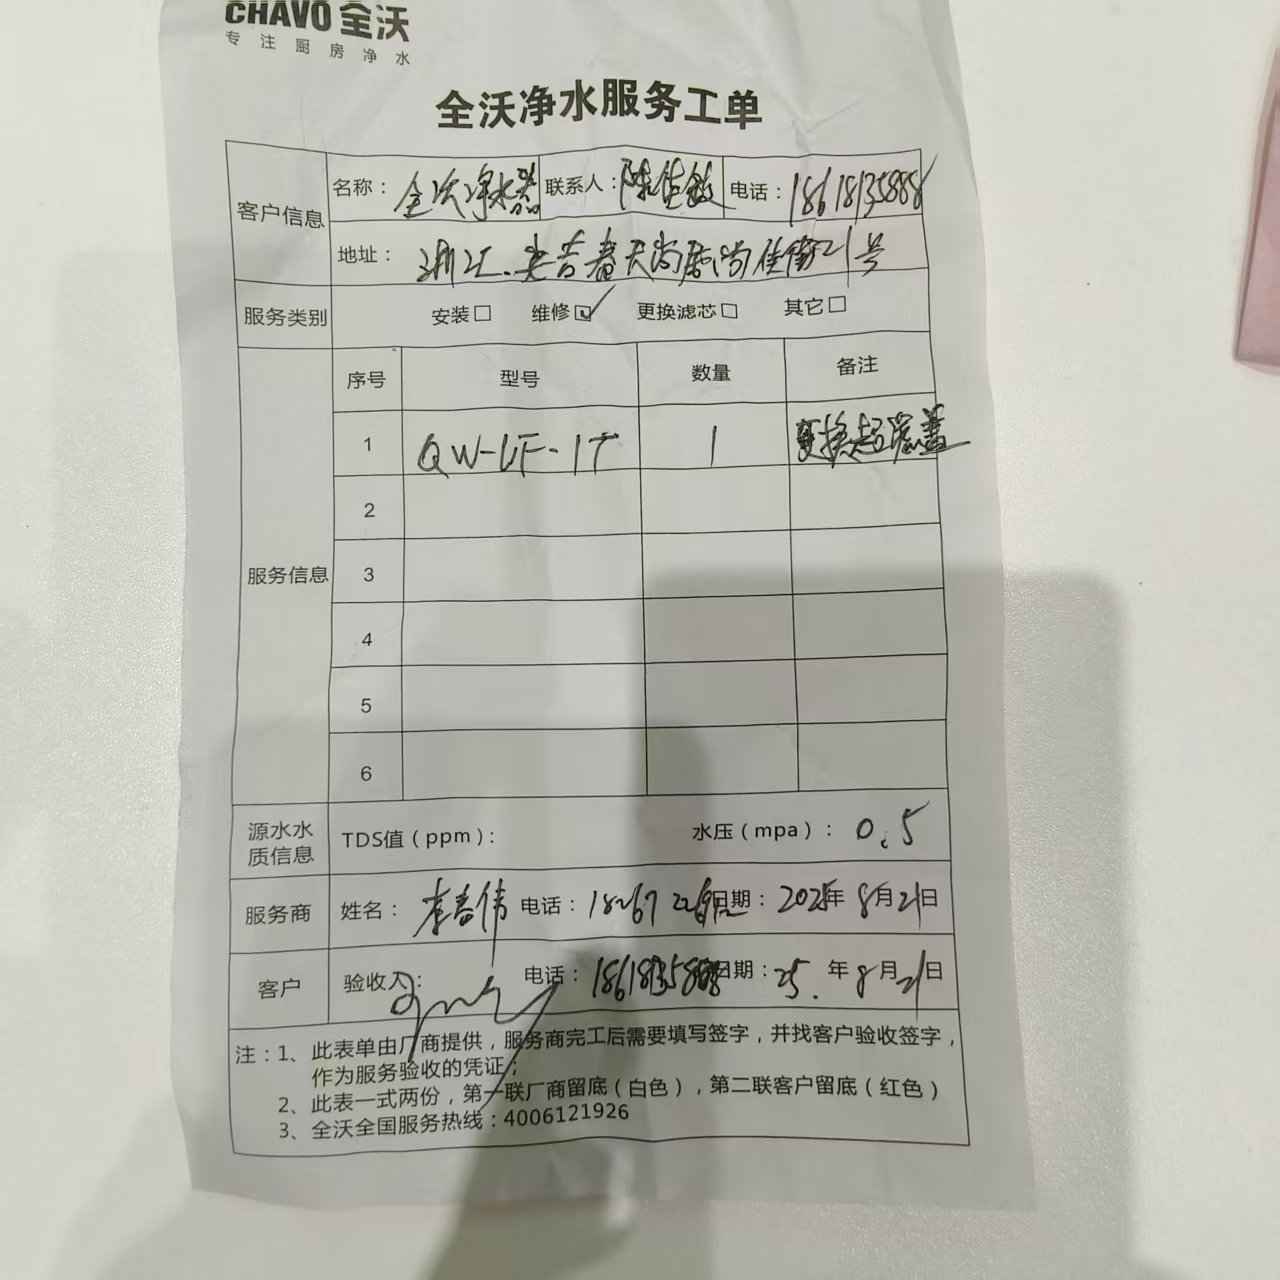 CHAVO 全沃
专注厨房净水
全沃净水服务工单
客户信息 名称：全沃净水器 联系人：陈佳敏 电话：18618135888
地址：浙江.安吉春天尚居尚佳街21号
服务类别 安装□ 维修☑ 更换滤芯□ 其它□
服务信息 序号 型号 数量 备注
1 QW-UF-1T 1 更换超滤盖
2
3
4
5
6
源水水质信息 TDS值（ppm）： 水压（mpa）：0.5
服务商 姓名：李春伟 电话：18267 日期：2025年8月21日
客户 验收人： 电话：18618135888 日期：25.年8月21日
注：1、此表单由厂商提供，服务商完工后需要填写签字，并找客户验收签字，
作为服务验收的凭证；
2、此表一式两份，第一联厂商留底（白色），第二联客户留底（红色）
3、全沃全国服务热线：4006121926